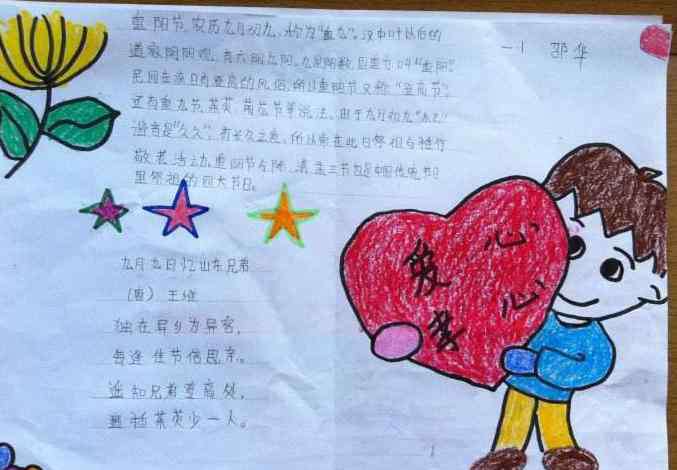 重阳节,农历九月初九,水你为"重九"。汉中叶以后的
道家阴阳观,有六阴九阳。九是阳数,固重九叫"重阳"。
民间在该日有登高的风俗,所以重阳节又称"登高节"。
还有重九节、茱萸、菊花节等说法。由于九月初九"九九"
谐音是"久久",有长久之意,所以常在此日祭祖与推行
敬老活动。重阳节与除、清、盂三节也是中国传统节日
里祭祖的四大节日。
一1 邵华
九月九日忆山东兄弟
(唐) 王维
独在异乡为异客,
每逢佳节倍思亲。
遥知兄弟登高处,
遍插茱萸少一人。
爱心
孝心